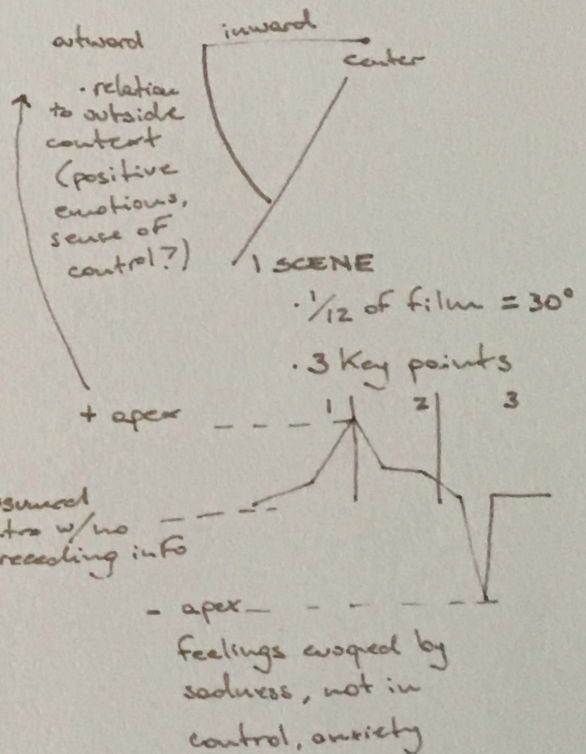 outward
inward
center
· relation
to outside
context
(positive
emotions,
sense of
control?)
1 SCENE
· 1/12 of film = 30°
· 3 key points
+ apex
1
2
3
ssumed
w/no
receeding info
- apex
feelings evoqued by
sadness, not in
control, anxiety